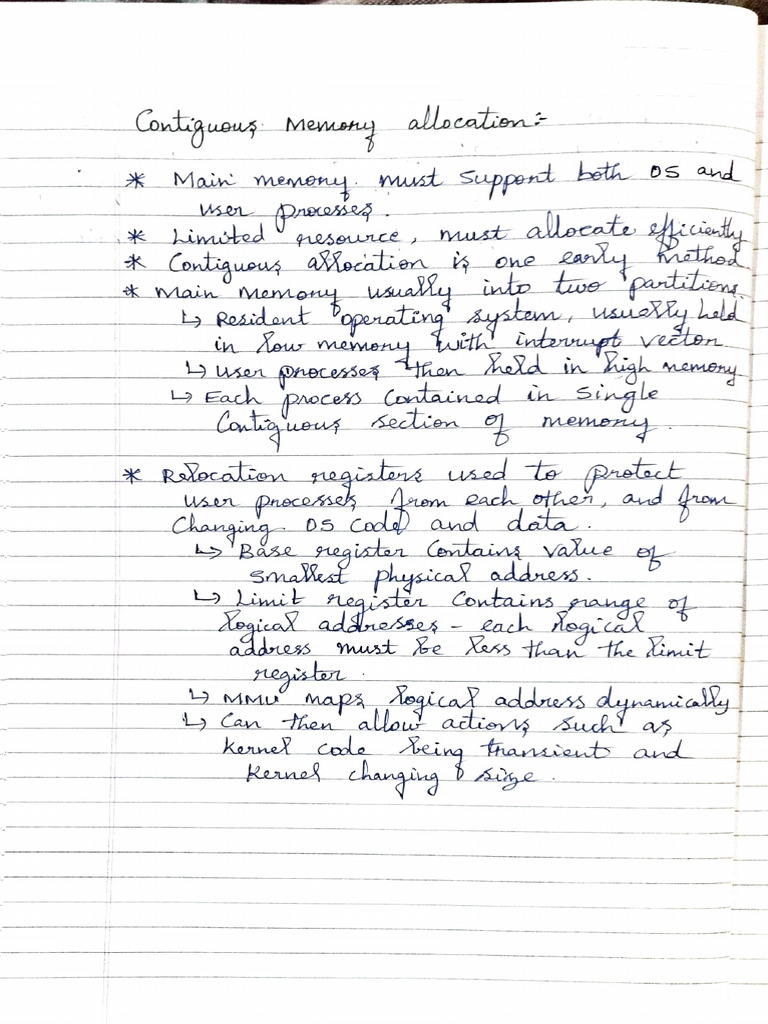 Contiguous Memory allocation:-
* Main memory must support both OS and
user processes.
* Limited resource, must allocate efficiently
* Contiguous allocation is one early method.
* Main memory usually into two partitions.
↳ Resident operating system, usually held
in low memory with interrupt vector
↳ User processes then held in high memory
↳ Each process contained in single
Contiguous section of memory.
* Relocation registers used to protect
user processes from each other, and from
Changing OS code and data.
↳ Base register Contains value of
smallest physical address.
↳ Limit register contains range of
logical addresses - each logical
address must be less than the limit
register.
↳ MMU maps logical address dynamically
↳ Can then allow actions such as
kernel code being transient and
kernel changing size.